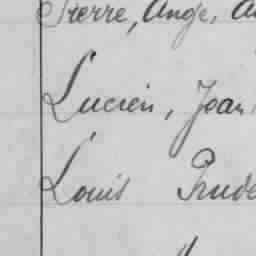 Pierre, Ange,
Lucien, Jean
Louis Prude